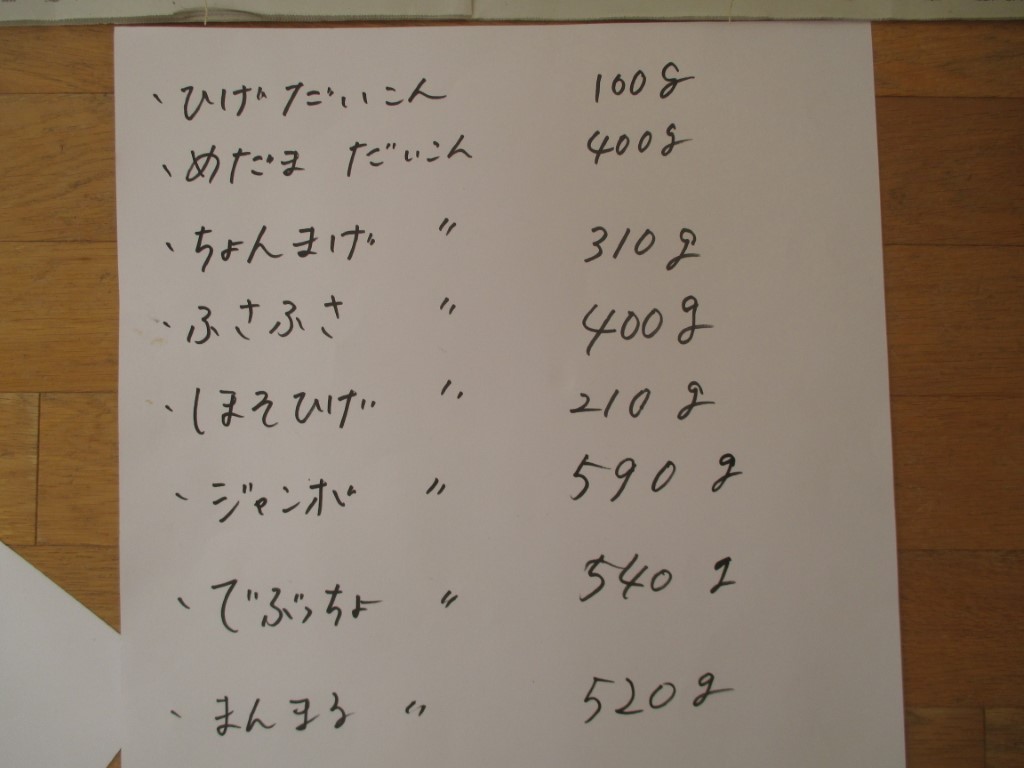 、ひげだいこん 100g
、めだま だいこん 400g
、ちょんまげ 〃 310g
、ふさふさ 〃 400g
、しまそひげ 〃 210g
、ジャンボ 〃 590g
、でぶっちょ 〃 540g
、まんまる 〃 520g